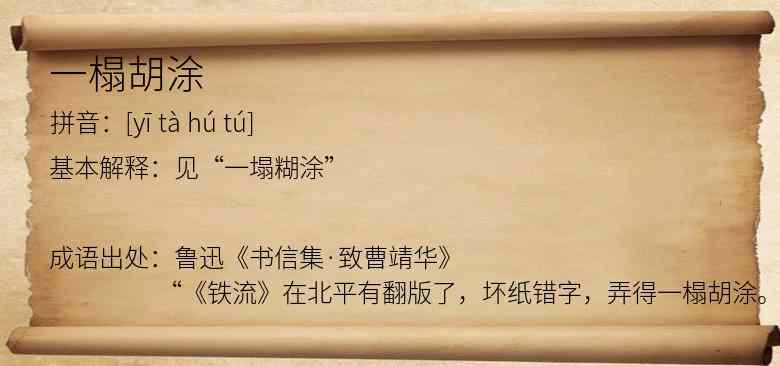 一榻胡涂
拼音：[yī tà hú tú]
基本解释：见“一塌糊涂”
成语出处：鲁迅《书信集·致曹靖华》
“《铁流》在北平有翻版了，坏纸错字，弄得一榻胡涂。